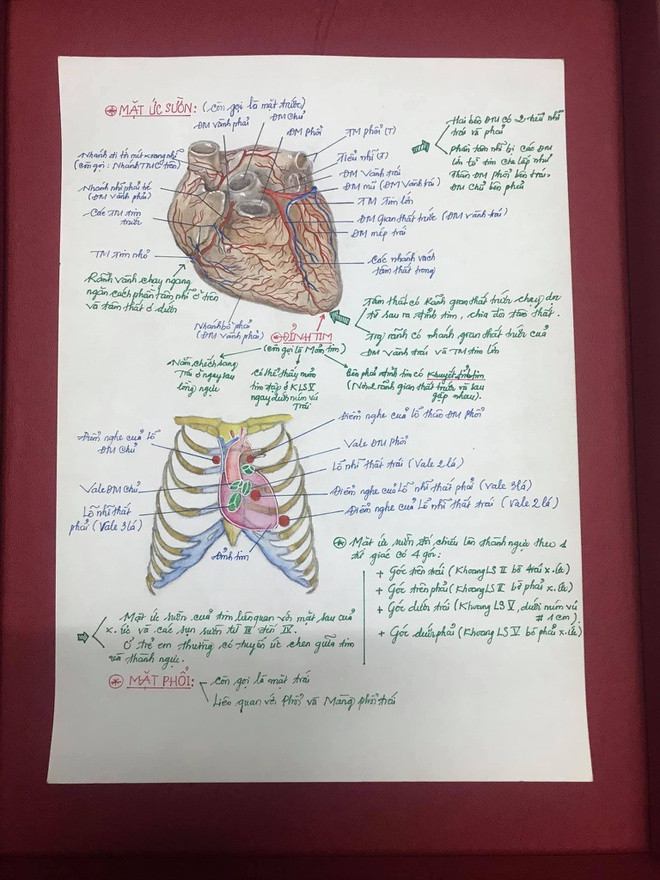 ⊛ MẶT ỨC SƯỜN: (còn gọi là mặt trước)
ĐM vành phải
ĐM Chủ
ĐM Phổi
TM phổi (T)
Tiểu nhĩ (T)
ĐM vành trái
ĐM mũ (ĐM Vành trái)
TM Tim lớn
ĐM gian thất trước (ĐM vành trái)
ĐM mép trái
Các nhánh vách
tâm thất trong
Nhánh đi tới nút xoang nhĩ
(còn gọi: Nhánh TMC trên)
Nhánh nhĩ phải bé
(ĐM vành phải)
Các TM tim
trước
TM tim nhỏ
Rãnh vành chạy ngang
ngăn cách phần tâm nhĩ ở trên
và tâm thất ở dưới
Nhánh bờ phải
(ĐM vành phải)
Hai bên ĐM có 2 tiểu nhĩ
trái và phải
Phần tâm nhĩ bị các ĐM
lớn từ tim che lấp như
Thân ĐM phổi bên trái,
ĐM chủ bên phải
Tâm thất có Rãnh gian thất trước chạy dọc
từ sau ra đỉnh tim, chia đôi tâm thất.
Trg rãnh có nhánh gian thất trước của
ĐM vành trái và TM tim lớn
⊛ ĐỈNH TIM
(còn gọi là Mỏm tim)
Nằm chếch sang
Trái ở ngay sau
lồng ngực
Có thể thấy mỏm
tim đập ở KLS V
ngay dưới núm vú
Trái
Bên phải đỉnh tim có Khuyết đỉnh tim
(Nơi 2 rãnh gian thất trước và sau
gặp nhau).
Điểm nghe của lỗ
ĐM Chủ
Vale ĐM Chủ
Lỗ nhĩ thất
phải (Vale 3 lá)
Đỉnh tim
Điểm nghe của lỗ thân ĐM Phổi
Vale ĐM Phổi
Lỗ nhĩ thất trái (Vale 2 lá)
Điểm nghe của Lỗ nhĩ thất phải (Vale 3 lá)
Điểm nghe của Lỗ nhĩ thất trái (Vale 2 lá)
⊛ Mặt ức sườn đối chiếu lên thành ngực theo 1
tứ giác có 4 góc:
+ Góc trên trái (Khoang LS II bờ trái x.ức)
+ Góc trên phải (Khoang LS II bờ phải x.ức)
+ Góc dưới trái (Khoang LS V, dưới núm vú
# 1 cm)
+ Góc dưới phải (Khoang LS V bờ phải x.ức)
Mặt ức sườn của tim liên quan với mặt sau của
x.ức và các sụn sườn từ III đến IV.
Ở trẻ em thường có tuyến ức chen giữa tim
và thành ngực.
⊛ MẶT PHỔI:
còn gọi là mặt trái
Liên quan với Phổi và Màng phổi trái